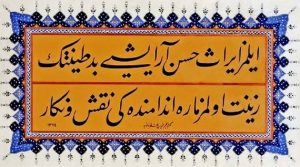 ایلمز ایراث حسن آرایشی بد طینتك
زینت اولمز ماره اندامنده كی نقش و نكار